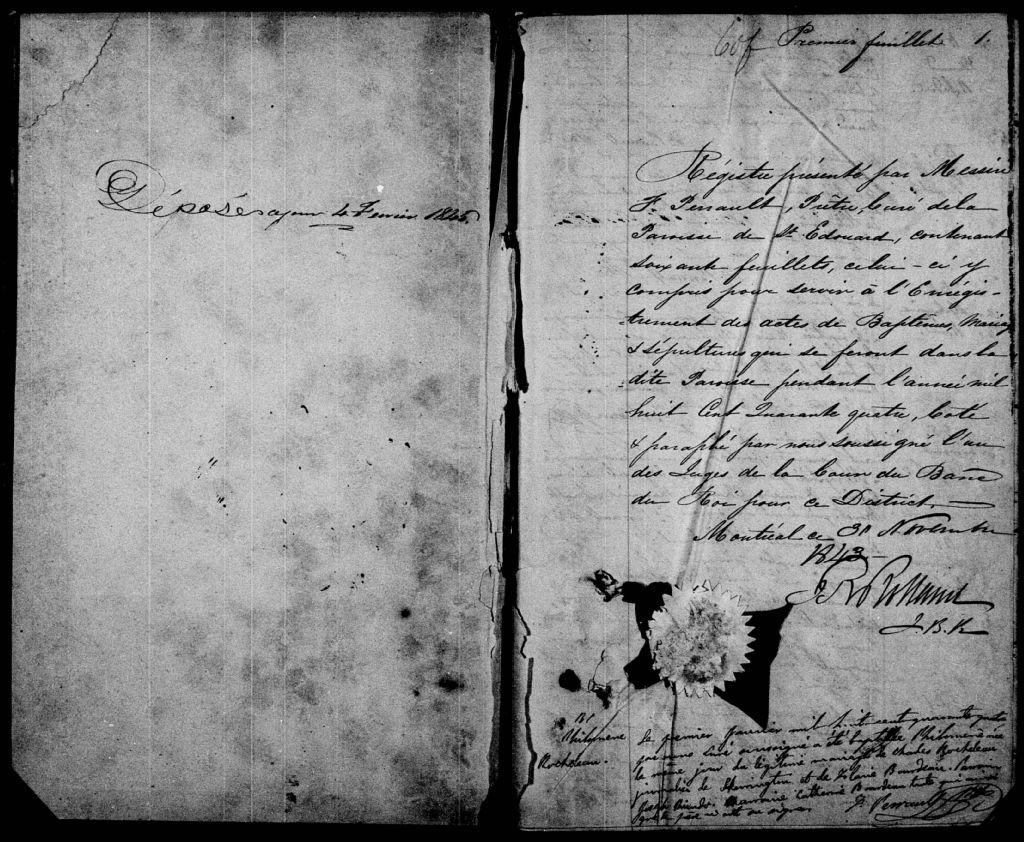 Déposé ce jour 4 Fevrier 1845
60f Premier feuillet 1.
Régistre présenté par Messire
F. Perrault, Prêtre, Curé de la
Paroisse de St Edouard, contenant
soixante feuillets, celui-ci y
compris pour servir à l'Enrégis-
-trement des actes de Baptêmes, Mariag
& sépultures qui se feront dans la
dite Paroisse pendant l'année mil
huit Cent Quarante quatre, Coté
& paraphé par nous soussigné l'un
des Juges de la Cour du Banc
du Roi pour ce District,
Montréal ce Novembre
1843
Rolland
J.B.R
B1
Philomene
Rocheleau.
Le premier janvier mil huit cent quarante quatre
par nous curé soussigné a été baptisée Philomène née
le même jour du légitime mariage de Charles Rocheleau
journalier de Sherrington et de Bourdeau. Parrain
Marraine Catherine Bourdeau
que le père ont su signer.
F. Perrault Ptre